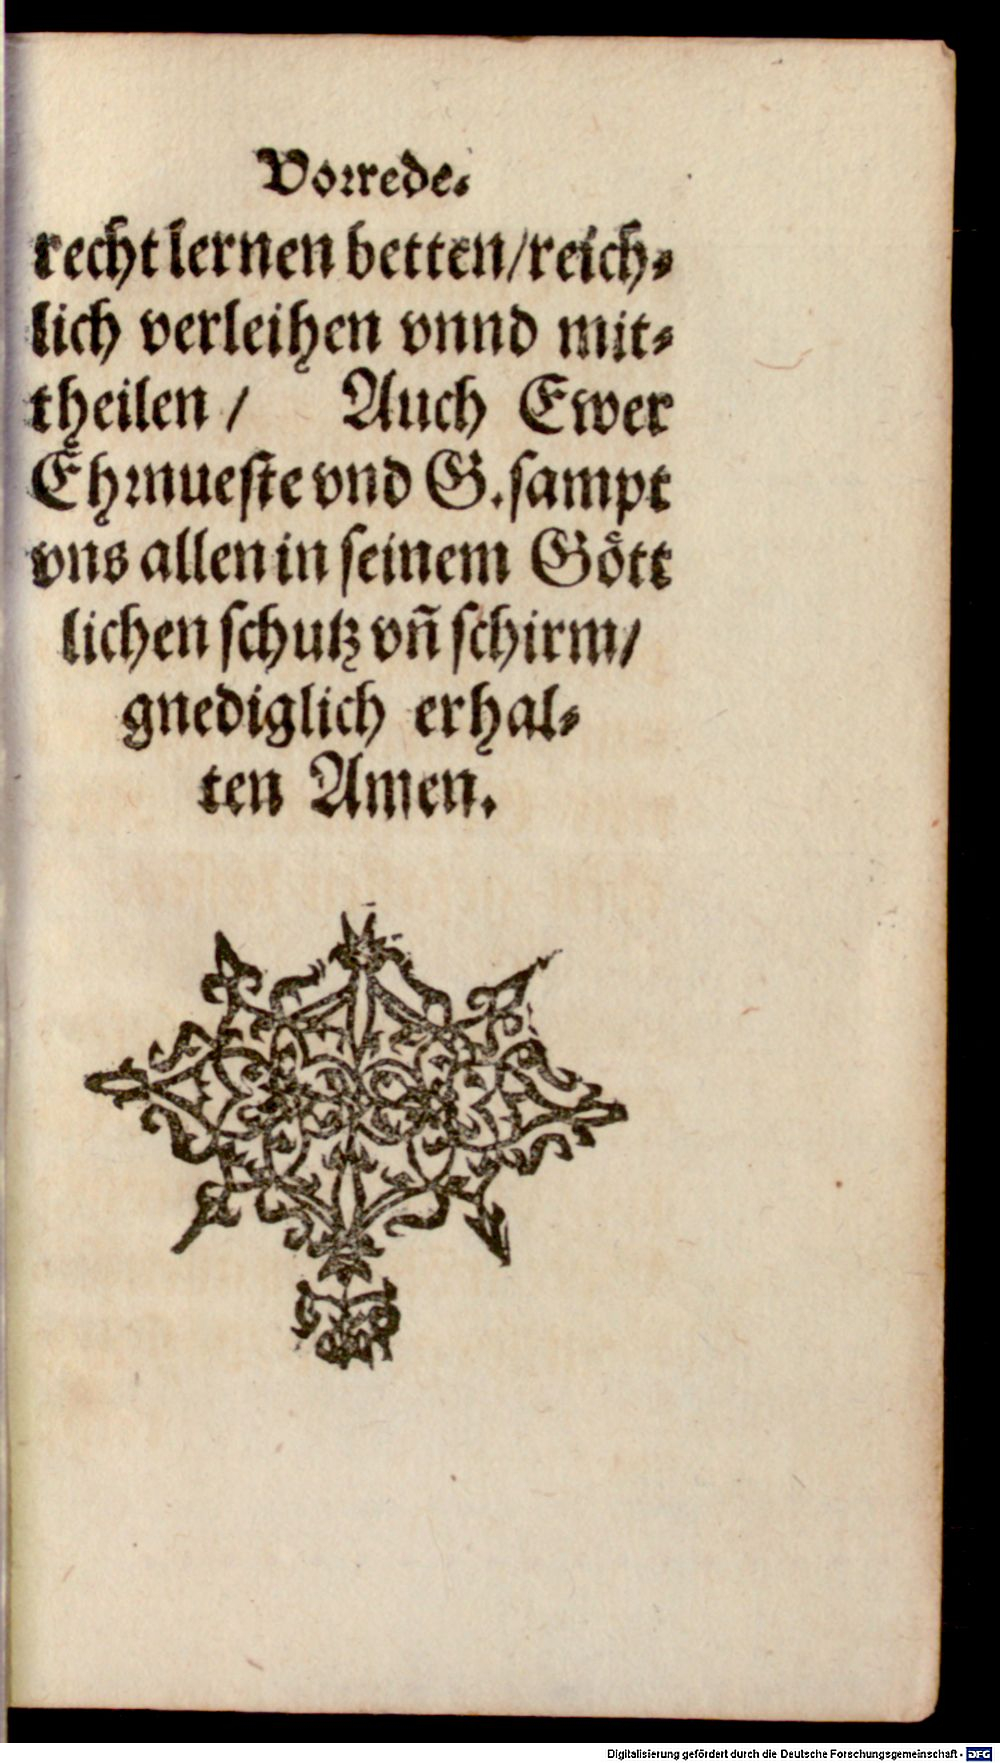 Vorrede.
recht lernen betten/reich-
lich verleihen vnnd mit-
theilen / Auch Ewer
Ehrnueste vnd G. sampt
vns allen in seinem Gött
lichen schutz vñ schirm/
gnediglich erhal-
ten Amen.
Digitalisierung gefördert durch die Deutsche Forschungsgemeinschaft - DFG